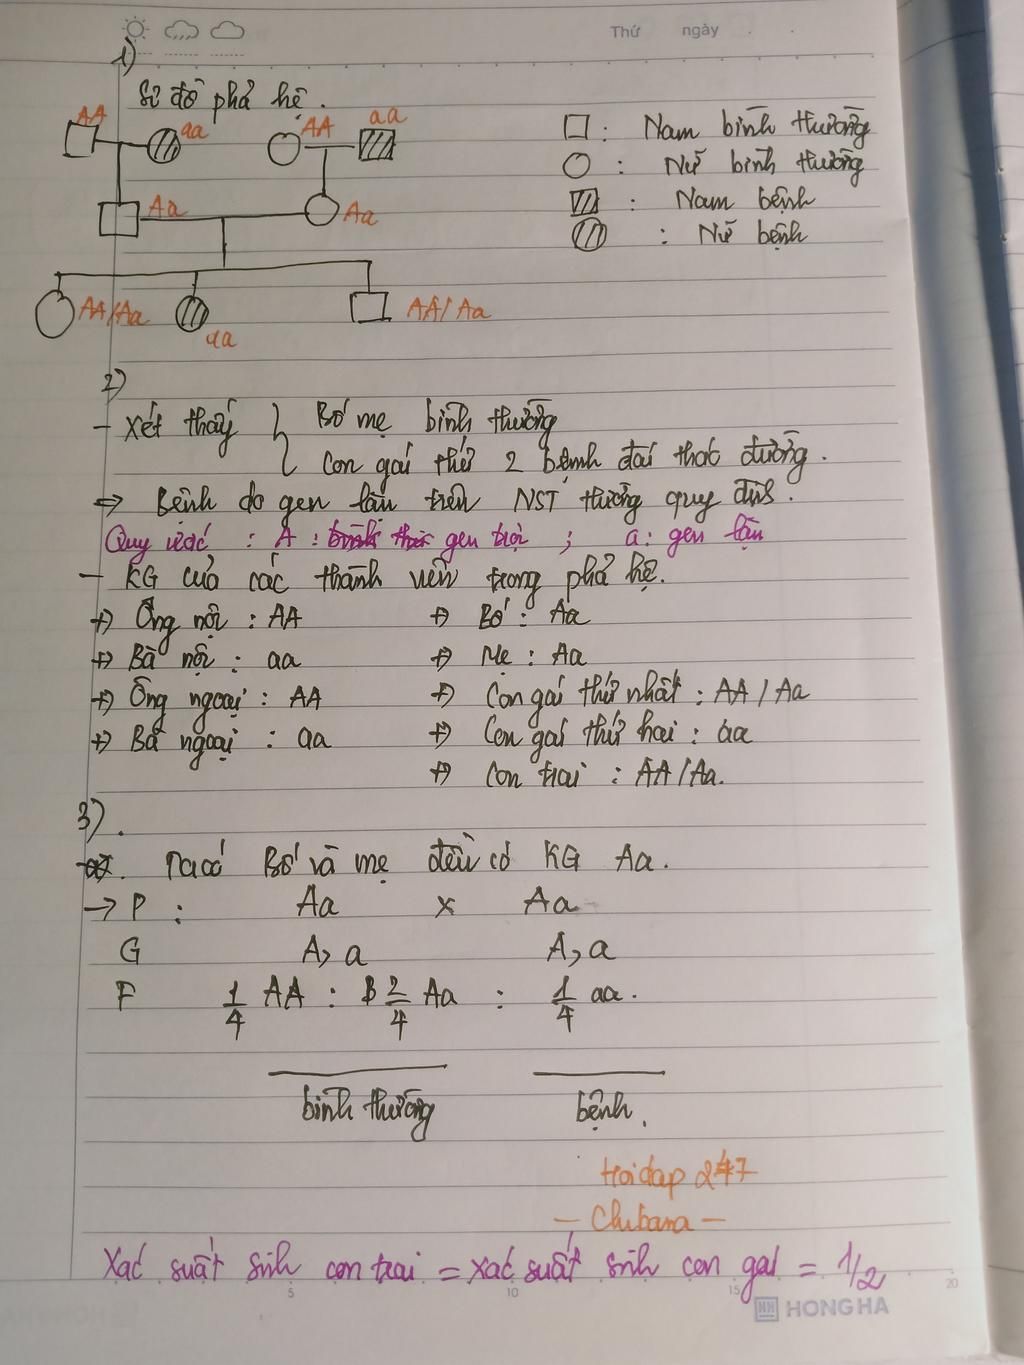 Thứ ngày
1)
Sơ đồ phả hệ.
AA aa AA aa
□: Nam bình thường
○: Nữ bình thường
: Nam bệnh
: Nữ bệnh
Aa Aa
AA/Aa aa AA/Aa
2)
- Xét thấy { Bố mẹ bình thường
Con gái thứ 2 bệnh đái tháo đường.
=> Bệnh do gen lặn trên NST thường quy định.
Quy ước : A : gen trội ; a: gen lặn
- KG của các thành viên trong phả hệ.
+) Ông nội : AA +) Bố : Aa
+) Bà nội : aa +) Mẹ : Aa
+) Ông ngoại : AA +) Con gái thứ nhất : AA / Aa
+) Bà ngoại : aa +) Con gái thứ hai : aa
+) Con trai : AA/Aa.
3).
Ta có Bố và mẹ đều có KG Aa.
-> P : Aa x Aa
G A, a A, a
F 1/4 AA : 2/4 Aa : 1/4 aa.
bình thường bệnh.
Hoidap 247
- Chibana -
Xác suất sinh con trai = xác suất sinh con gái = 1/2
5 10 15 20
HONG HA